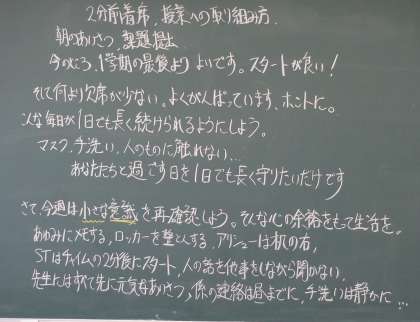 2分前着席、授業への取り組み方、
朝のあいさつ、課題提出
今のところ、1学期の最後より よいです。スタートが良い！
そして何より欠席が少ない。よくがんばっています、ホントに。
こんな毎日が1日でも長く続けられるようにしよう。
マスク、手洗い、人のものに触れない…
あなたたちと過ごす日を1日でも長く守りたいだけです
さて、今週は小さな意識を再確認しよう。そんな心の余裕をもって生活を。
あゆみにメモする、ロッカーを整とんする、ティシューは机の右、
STはチャイムの2分後にスタート、人の話を他事をしながら聞かない、
先生にはすべて先に元気なあいさつ、係の連絡は昼までに、手洗いは静かに…